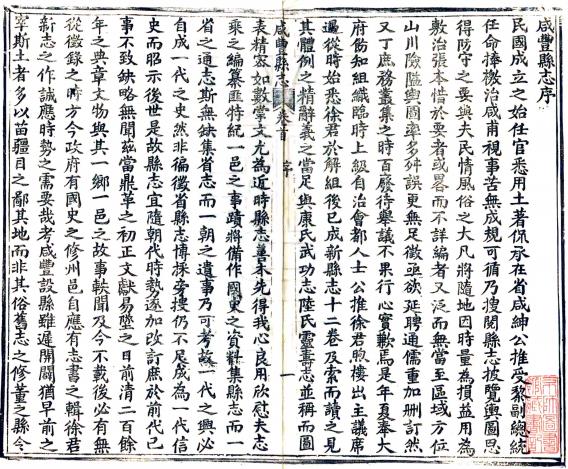 咸豐縣志序
民國成立之始任官悉用土著侃承在省咸紳公推受黎副總統
任命捧檄治咸甫視事苦無成規可循乃搜閱縣志披覽輿圖思
得防守之要與夫民情風俗之大凡將隨地因時量為損益用為
敷治張本惜於要者或畧而不詳編者又泛而無當至區域方位
山川險隘輿圖率多舛誤更無足徵亟欲延聘通儒重加刪訂然
又丁庶務叢集之時百廢待舉議不果行心實歉焉是年夏奉大
府飭知組織臨時上級自治會都人士公推徐君煦樓出主議席
過從時始悉徐君於解組後已成新縣志十二卷及索而讀之見
其體例之精辭義之當足與康氏武功志陸氏靈壽志並稱而圖
咸豐縣志 卷首 序 一
表精密如數掌文尤為近時縣志善本先得我心良用欣慰夫志
乘之編纂匪特紀一邑之事蹟將備作國史之資料集縣志而一
省之通志斯無缺集省志而一朝之遺事乃可考故一代之興必
自成一代之史然非徧徵省縣志博採旁搜仍不足成為一代信
史而昭示後世是故縣志宜隨朝代時勢逐加改訂庶於前代已
事不致缺略無聞茲當鼎革之初正文獻易墜之日前清二百餘
年之典章文物與其一鄉一邑之故事軼聞及今不載後必有無
從徵錄之時方今政府有國史之修州邑自應有志書之輯徐君
新志之作誠應時勢之需要哉考咸豐設縣雖遲開闢猶早前之
宰斯土者多以苗疆目之鄙其地而非其俗舊志之修董之縣令